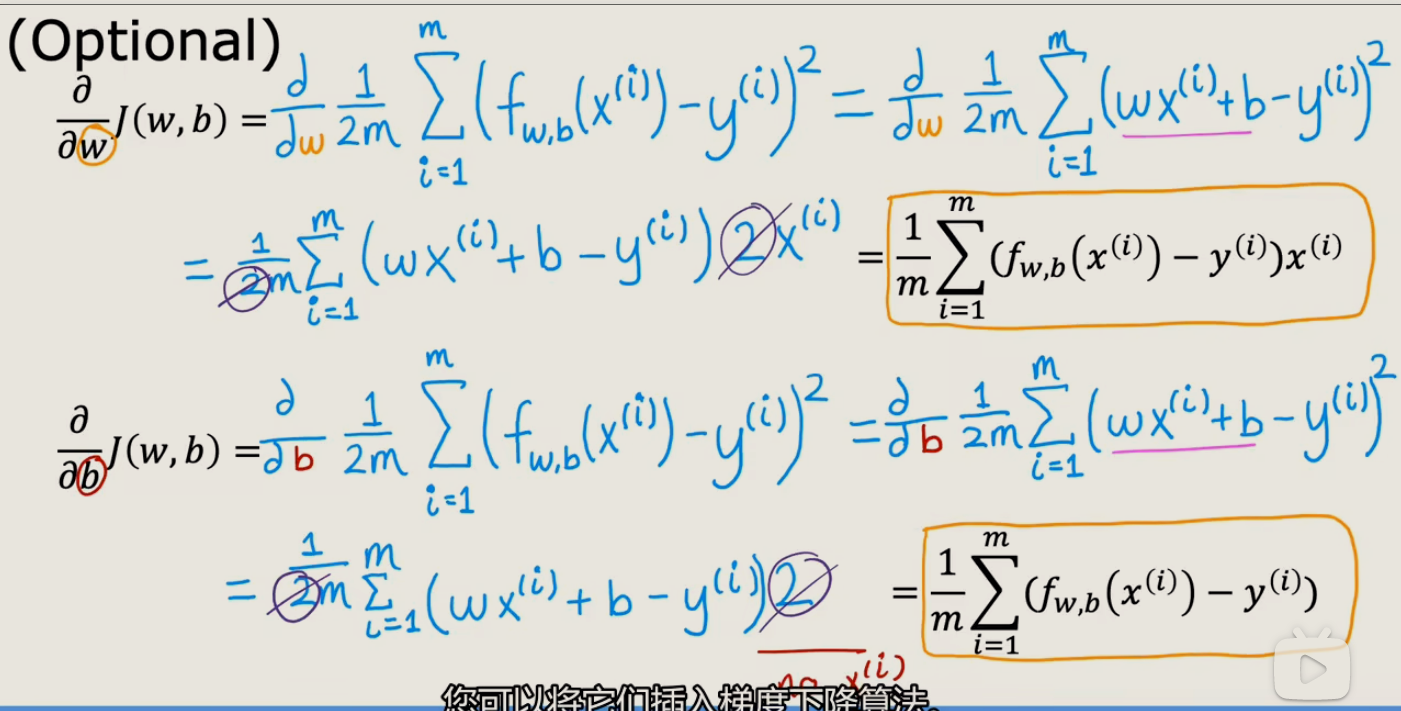 (Optional)
∂/∂w J(w, b) = d/dw 1/2m ∑_{i=1}^{m} (f_{w,b}(x^{(i)}) − y^{(i)})² = d/dw 1/2m ∑_{i=1}^{m} (wx^{(i)} + b − y^{(i)})²
= 1/2m ∑_{i=1}^{m} (wx^{(i)} + b − y^{(i)}) 2x^{(i)} = 1/m ∑_{i=1}^{m} (f_{w,b}(x^{(i)}) − y^{(i)})x^{(i)}
∂/∂b J(w, b) = ∂/∂b 1/2m ∑_{i=1}^{m} (f_{w,b}(x^{(i)}) − y^{(i)})² = ∂/∂b 1/2m ∑_{i=1}^{m} (wx^{(i)} + b − y^{(i)})²
= 1/2m ∑_{i=1}^{m} (wx^{(i)} + b − y^{(i)}) 2 = 1/m ∑_{i=1}^{m} (f_{w,b}(x^{(i)}) − y^{(i)})
x^{(i)}
您可以将它们插入梯度下降算法。